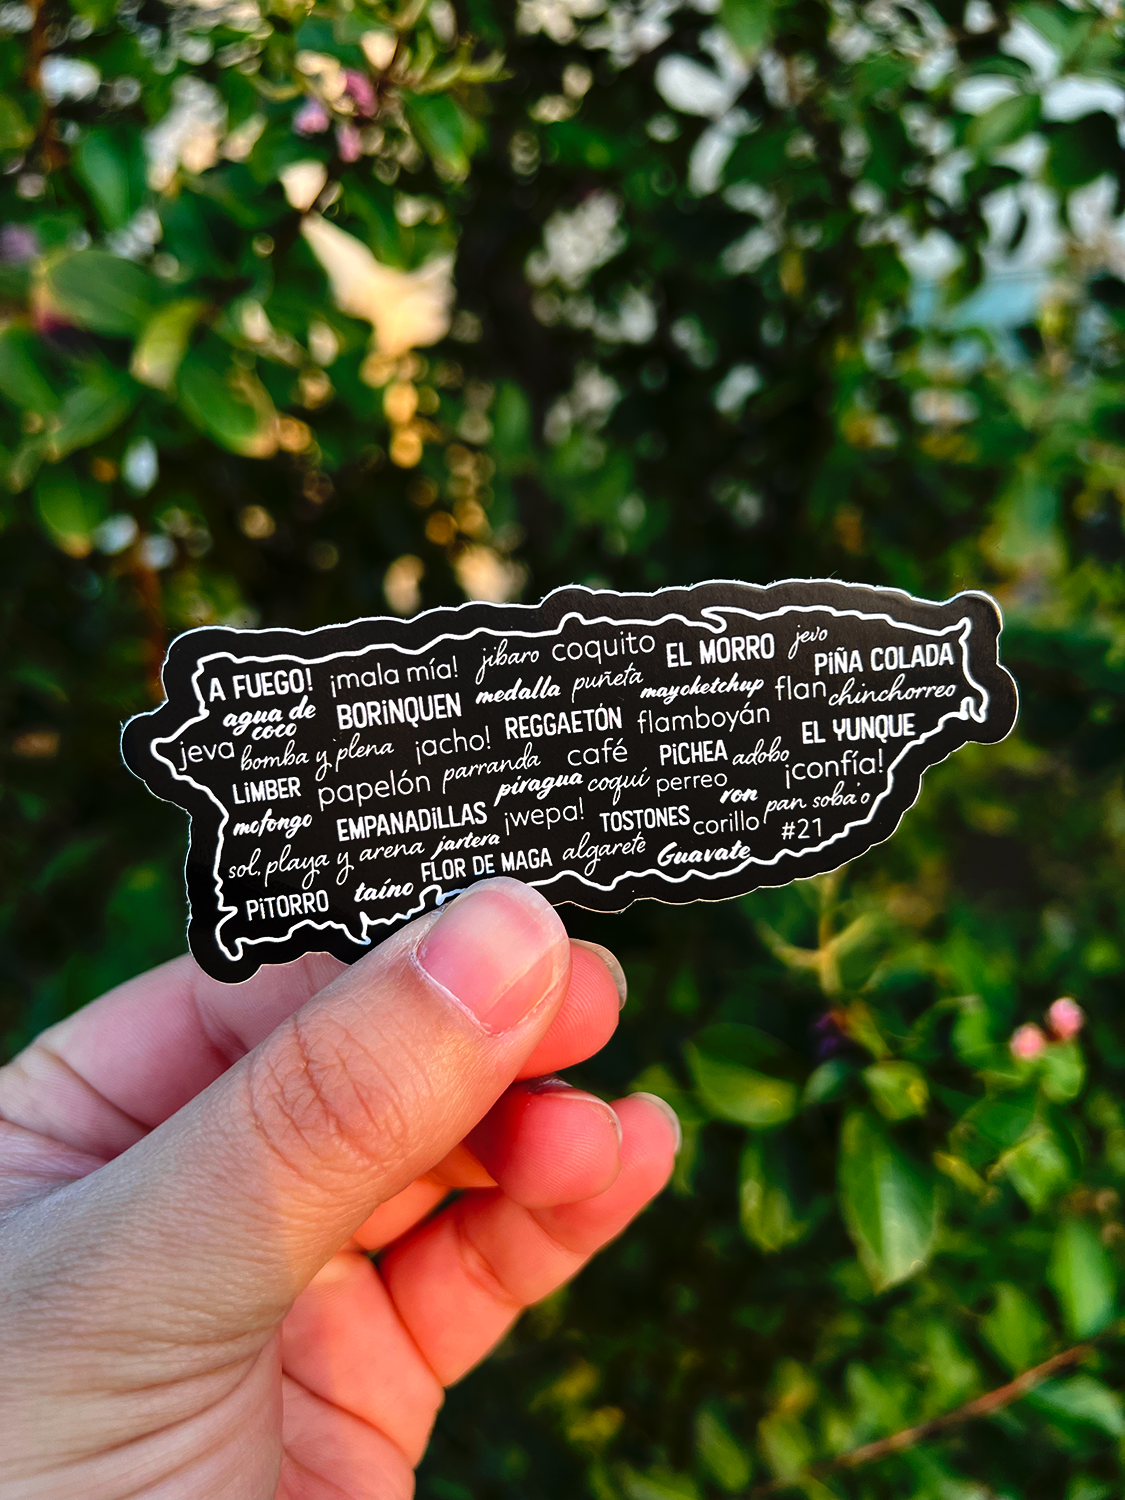 A FUEGO! ¡mala mía! jíbaro coquito EL MORRO jevo
agua de coco BORiNQUEN medalla puñeta mayoketchup PiÑA COLADA
jeva bomba y plena ¡acho! REGGAETÓN flamboyán flan chinchorreo
LiMBER papelón parranda café PiCHEA adobo EL YUNQUE
mofongo EMPANADiLLAS piragua coquí perreo ¡confía!
sol, playa y arena jartera ¡wepa! TOSTONES corillo ron pan soba'o
PiTORRO taíno FLOR DE MAGA algarete Guavate #21